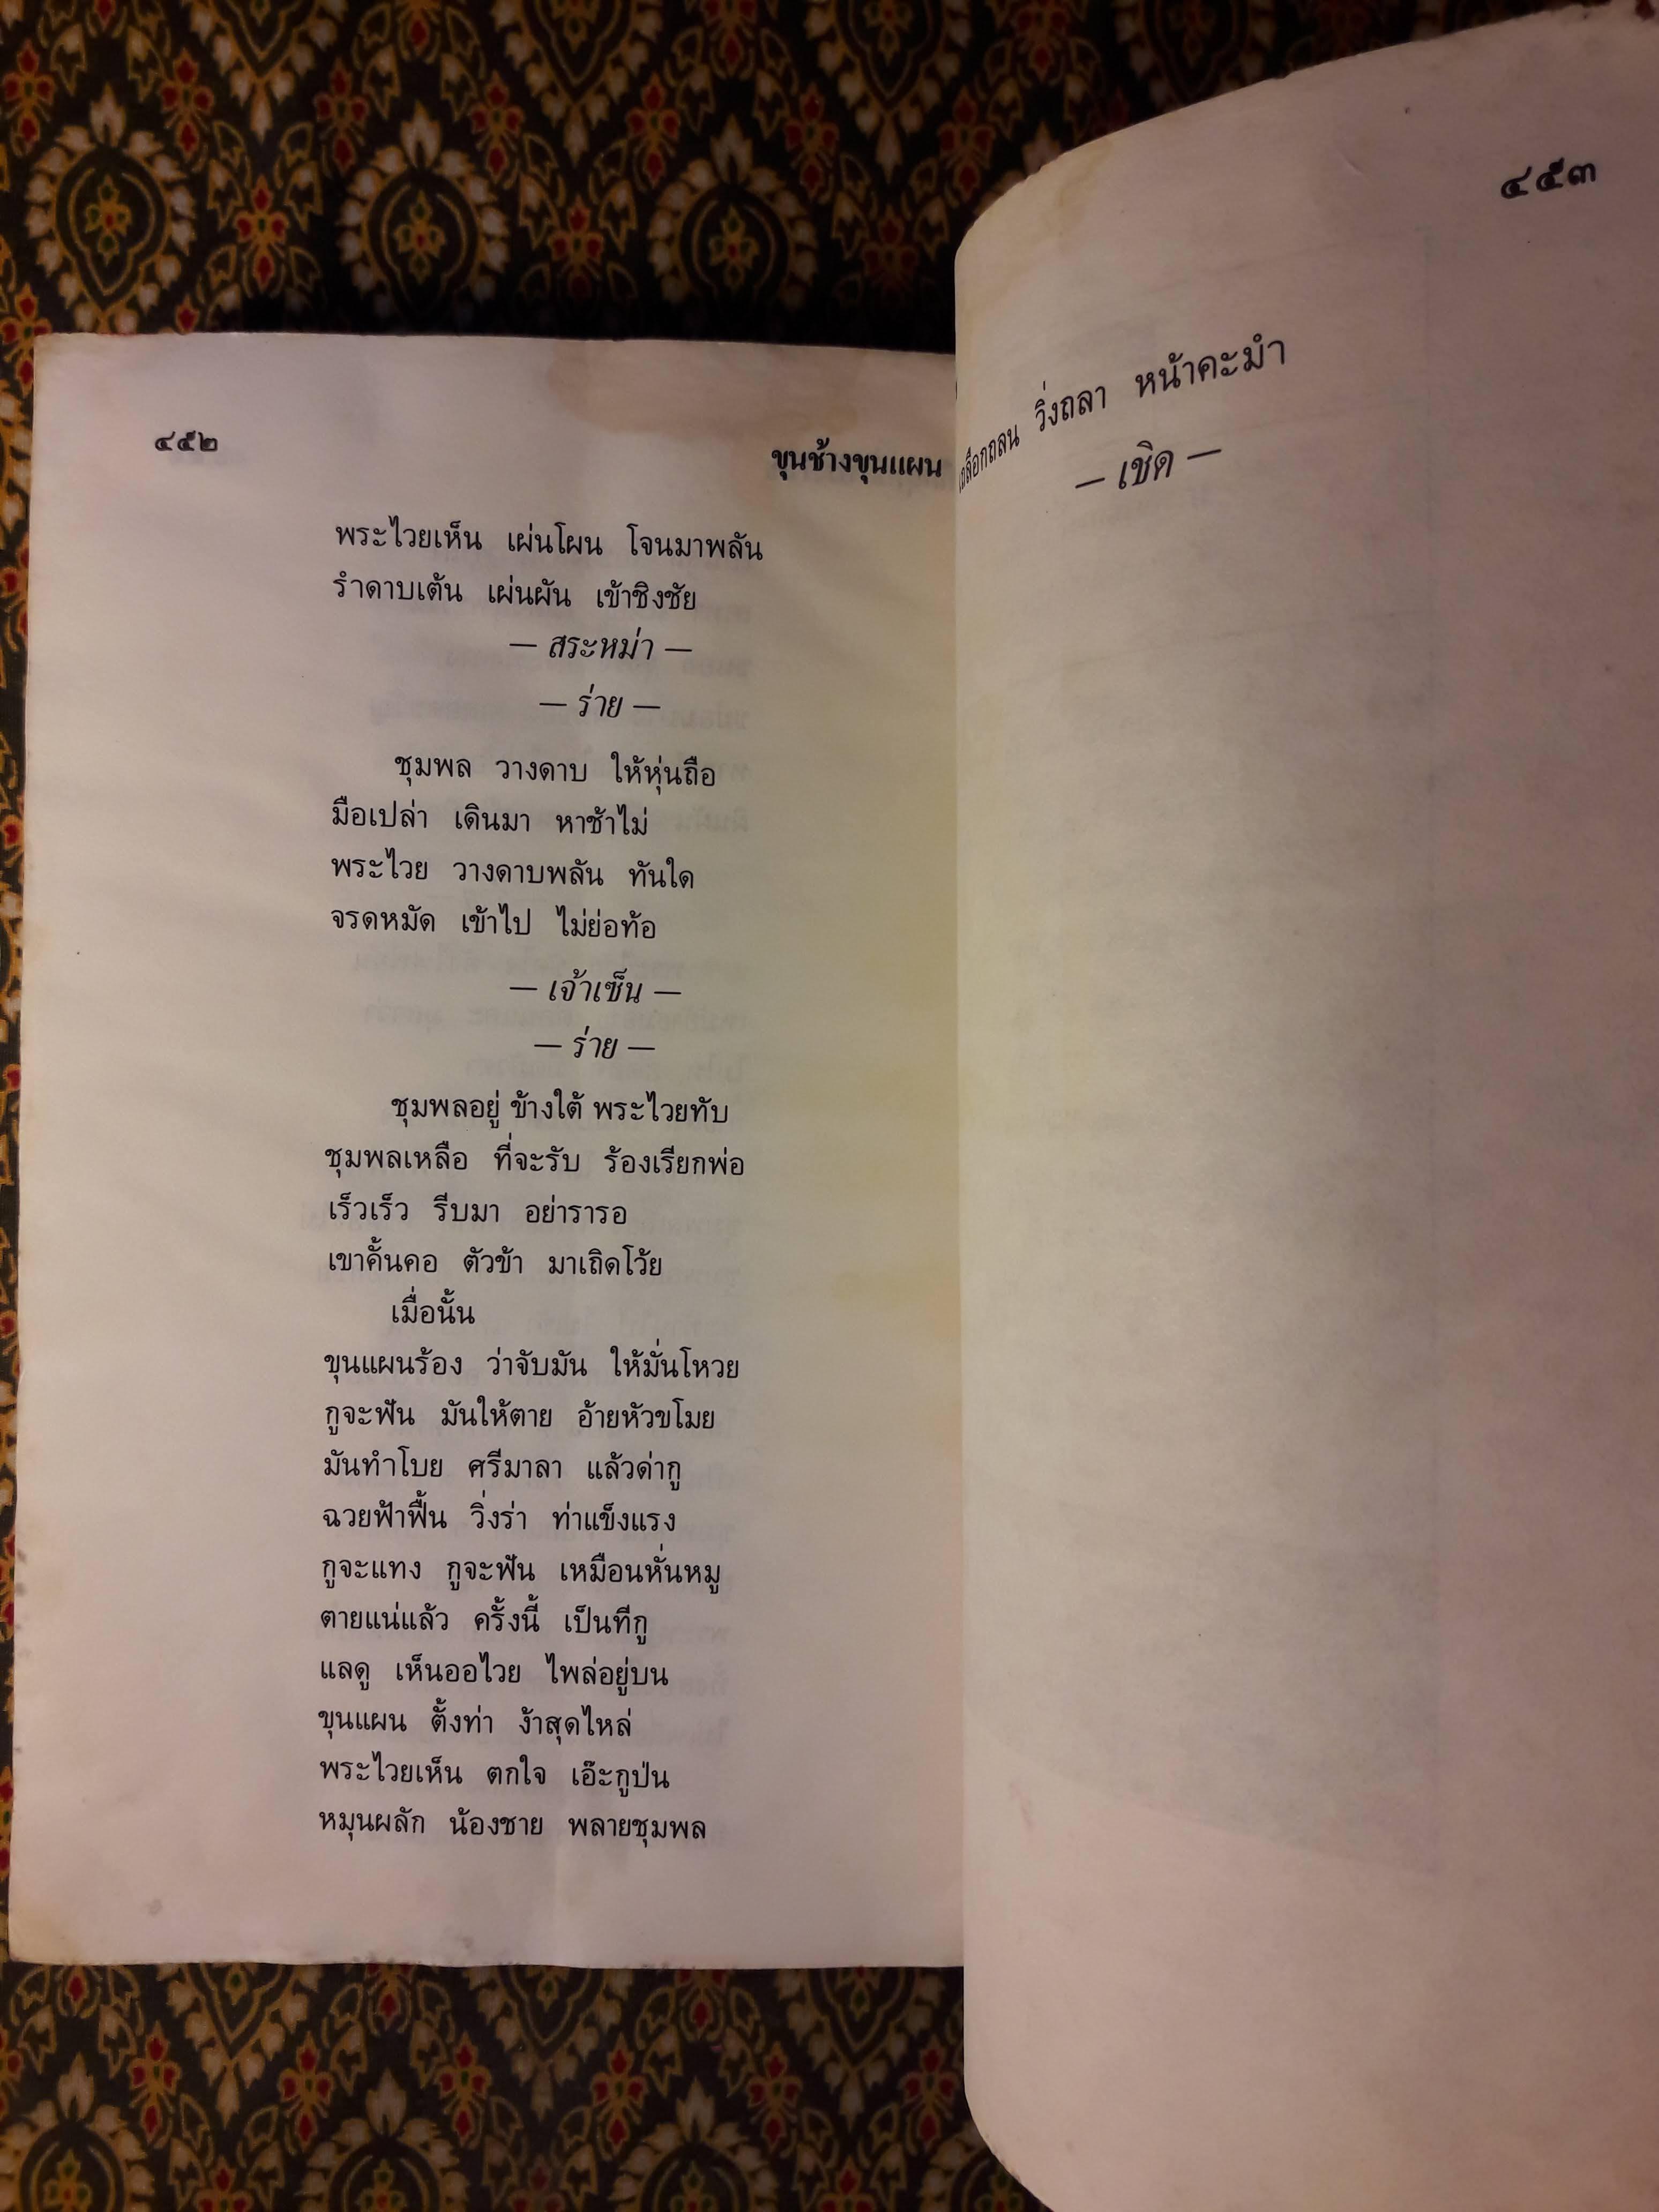 ๔๕๒
ขุนช้างขุนแผน
พระไวยเห็น เผ่นโผน โจนมาพลัน
รำดาบเต้น เผ่นผัน เข้าชิงชัย
— สระหม่า —
— ร่าย —
ชุมพล วางดาบ ให้หุ่นถือ
มือเปล่า เดินมา หาช้าไม่
พระไวย วางดาบพลัน ทันใด
จรดหมัด เข้าไป ไม่ย่อท้อ
— เจ้าเซ็น —
— ร่าย —
ชุมพลอยู่ ข้างใต้ พระไวยทับ
ชุมพลเหลือ ที่จะรับ ร้องเรียกพ่อ
เร็วเร็ว รีบมา อย่ารารอ
เขาคั้นคอ ตัวข้า มาเถิดโว้ย
เมื่อนั้น
ขุนแผนร้อง ว่าจับมัน ให้มั่นโหวย
กูจะฟัน มันให้ตาย อ้ายหัวขโมย
มันทำโบย ศรีมาลา แล้วด่ากู
ฉวยฟ้าฟื้น วิ่งร่า ท่าแข็งแรง
กูจะแทง กูจะฟัน เหมือนหั่นหมู
ตายแน่แล้ว ครั้งนี้ เป็นทีกู
แลดู เห็นออไวย ไพล่อยู่บน
ขุนแผน ตั้งท่า ง้าสุดไหล่
พระไวยเห็น ตกใจ เอ๊ะกูป่น
หมุนผลัก น้องชาย พลายชุมพล
๔๕๓
วิ่งถลา หน้าคะมำ
— เชิด —